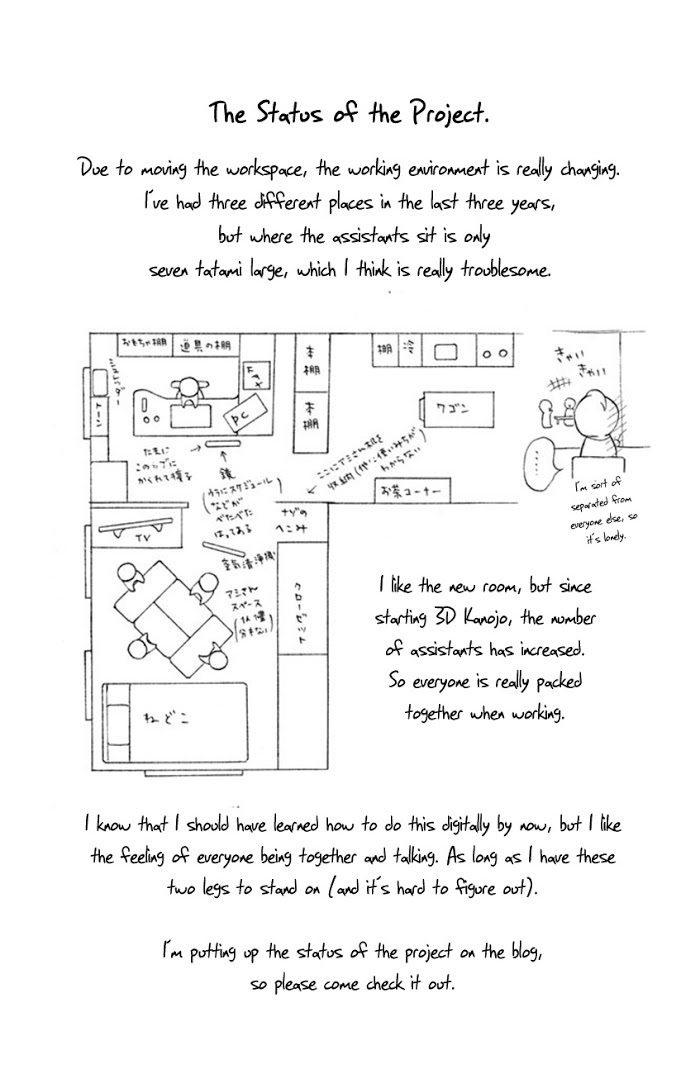 The Status of the Project.
Due to moving the workspace, the working environment is really changing.
I've had three different places in the last three years,
but where the assistants sit is only
seven tatami large, which I think is really troublesome.
おもちゃ棚
道具の棚
FAX
本棚
本棚
棚
冷
きゃい
きゃい
トーン
PC
ワゴン
たまに
このップに
かくれて寝る
鏡
(うらにスケジュール
などが
べたべた
はってある)
ここにアミさん机を
収納(他に使いみちが
わからない)
お茶コーナー
......
I'm sort of
separated from
everyone else, so
it's lonely.
ナゾの
へこみ
TV
空気清浄機
アミさん
スペース
クローゼット
ねどこ
I like the new room, but since
starting 3D Kanojo, the number
of assistants has increased.
So everyone is really packed
together when working.
I know that I should have learned how to do this digitally by now, but I like
the feeling of everyone being together and talking. As long as I have these
two legs to stand on (and it's hard to figure out).
I'm putting up the status of the project on the blog,
so please come check it out.